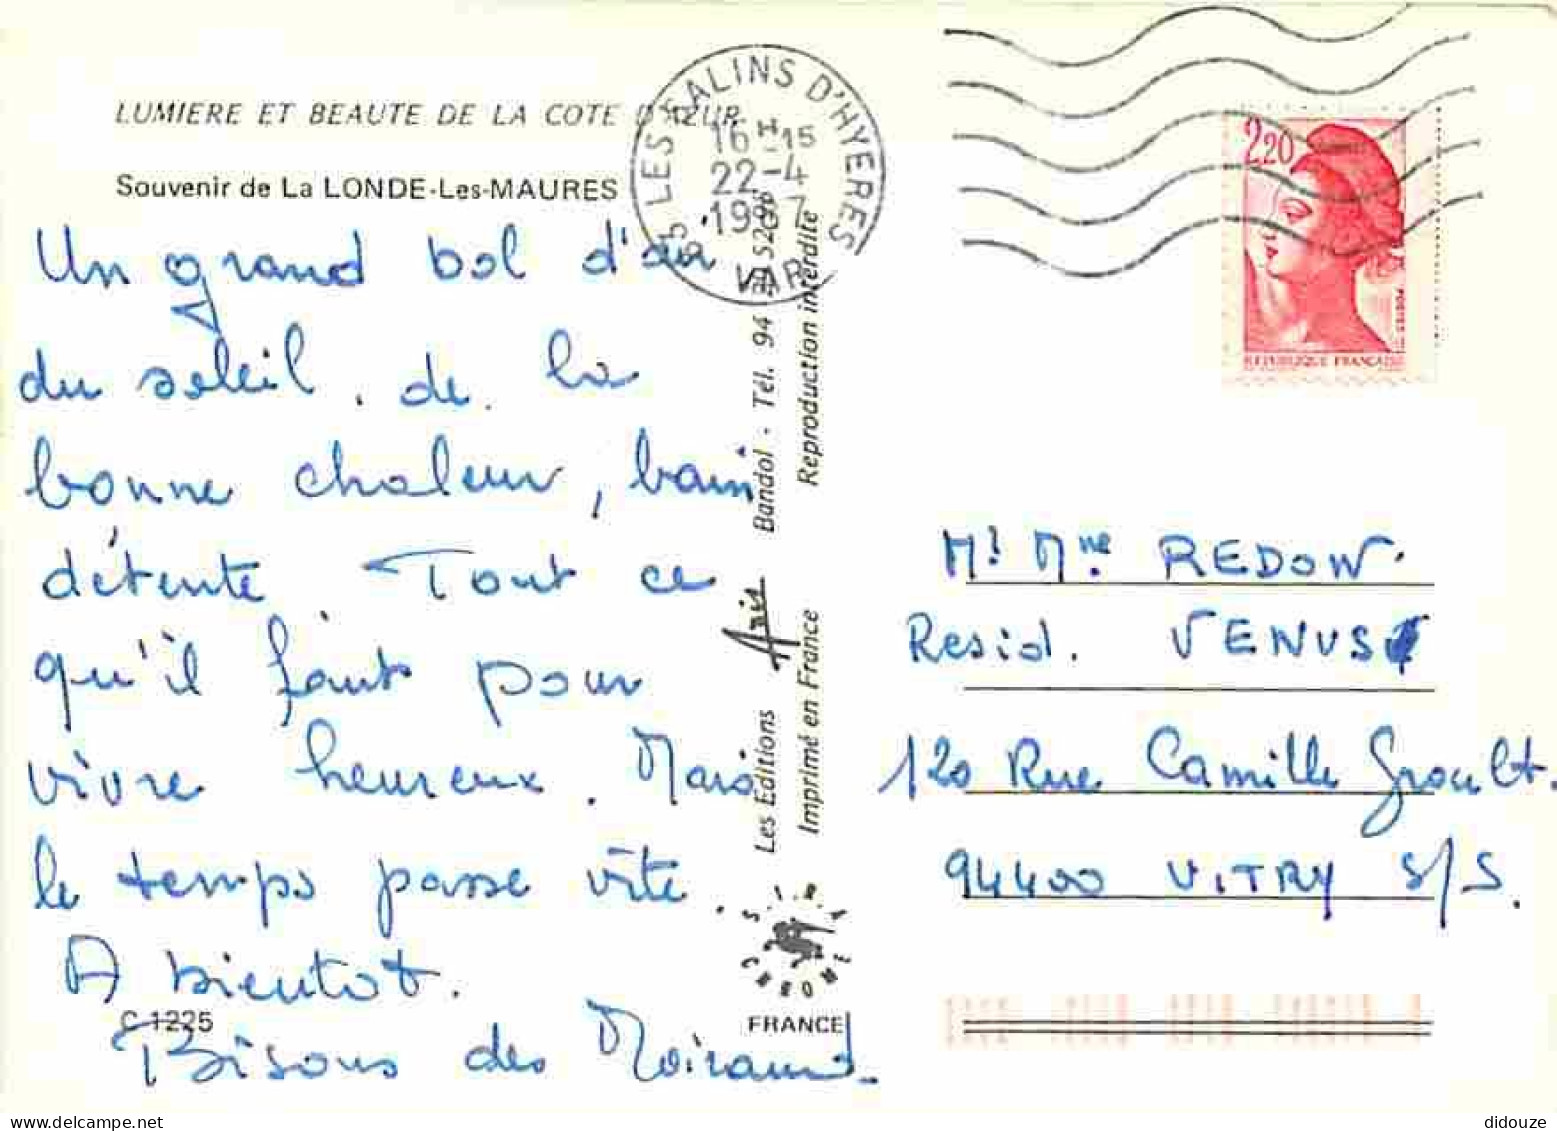 LUMIERE ET BEAUTE DE LA COTE D'AZUR
Souvenir de La LONDE-Les-MAURES
Un grand bol d'air
du soleil. de la
bonne chaleur, bain
détente Tout ce
qu'il faut pour
vivre heureux. Mais
le temps passe vite.
A bientot.
C 1225
Bisous des
LES SALINS D'HYERES
16H15
22-4
1987
VAR
Les Editions Aris Bandol - Tél. 94
Imprimé en France Reproduction interdite
S.I.R.A
CHROME
FRANCE
2,20
POSTES
REPUBLIQUE FRANÇAISE
Mr Mme REDOW.
Resid. VENUS
120 Rue Camille Groult.
94400 VITRY S/S.
didouze